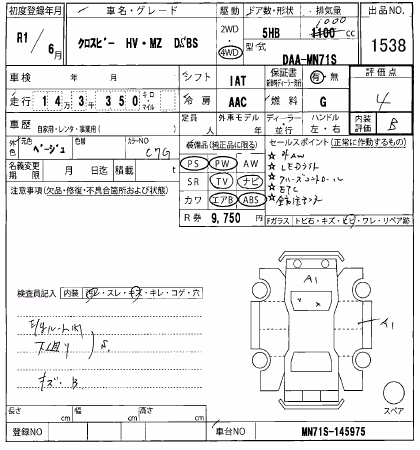 初度登録年月 車名・グレード 駆動 ドア数・形状 排気量 出品NO.
R1/6月 クロスビー HV・MZ D.BS 2WD・4WD 5HB 1000 1100 cc 1538
型式 DAA-MN71S
車検 年 月 シフト IAT 保証書 有・無 評価点
走行 14万3千350 キロ・マイル 冷房 AAC 燃料 G 4
車歴 自家用・レンタ・事業用( ) 定員 人 外車モデル 年 ディーラー・並行 ハンドル 左・右 内装評価 B
外色 元色 ベージュ 色替 カラーNO C7G
装備品(純正品に限る) セールスポイント(正常に作動するもの)
名義変更期限 月 日迄 積載 t
PS PW AW
SR TV ナビ
カワ エアB ABS
☆ 外AW
☆ LEDライト
☆ クルーズコントロール
☆ ETC
☆
注意事項(欠品・修復・不具合箇所および状態)
R券 9,750 円
Fガラス トビ石・キズ・ヒビ・ワレ・リペア跡
検査員記入 内装 ヨレ・スレ・キズ・キレ・コゲ・穴
下廻り S
キズ・B
A1
スペア
長さ cm 幅 cm 高さ cm
登録NO 車台NO MN71S-145975